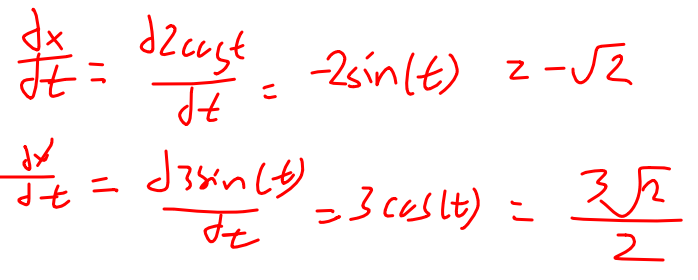 dx/dt = d2cost/dt = -2sin(t) = -√2
dx/dt = d3sin(t)/dt = 3cos(t) = 3√2/2